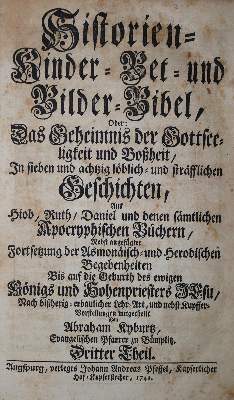 Historien-
Kinder- Bet- und
Bilder-Bibel,
Oder:
Das Geheimnis der Gottsee-
ligkeit und Boßheit,
In sieben und achtzig löblich- und sträfflichen
Geschichten,
Aus
Hiob, Ruth, Daniel und denen sämtlichen
Apocryphischen Büchern,
Nebst angefügter
Fortsetzung der Asmonäisch- und Herodischen
Begebenheiten
Bis auf die Geburth des ewigen
Königs und Hohenpriesters JEsu,
Nach bißherig- erbaulicher Lehr-Art, und nebst Kupffer-
Vorstellungen vorgestellt
von
Abraham Kyburtz,
Evangelischen Pfarrer zu Bümplitz.
Dritter Theil.
Augspurg, verlegts Johann Andreas Pfeffel, Kayserlicher
Hof-Kupferstecher,